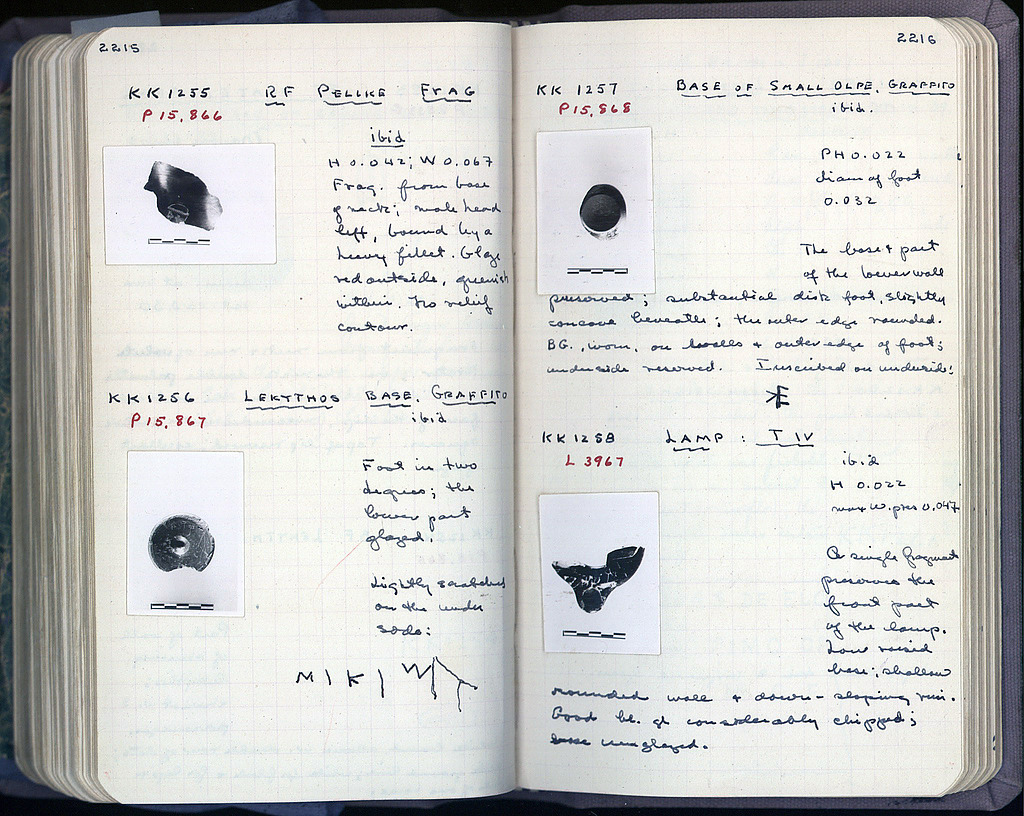 2215
KK 1255 RF PELIKE FRAG
P 15,866
ibid
H 0.042; W 0.067
Frag. from base
of neck; male head
left, bound by a
heavy fillet. Glaze
red outside, greenish
within. No relief
contour.
KK 1256 LEKYTHOS BASE, GRAFFITO
P 15,867 ibid
Foot in two
degrees; the
lower part
glazed.
Lightly scratched
on the under
side:
2216
KK 1257 BASE OF SMALL OLPE, GRAFFITO
P 15,868 ibid.
PH 0.022
diam of foot
0.032
The base & part
of the lower wall
preserved; substantial disk foot, slightly
concave beneath; the outer edge rounded.
BG., worn, on walls & outer edge of foot;
underside reserved. Inscribed on underside:
KK 1258 LAMP: T IV
L 3967 ibid
H 0.022
max W. pres 0.047
A single fragment
preserves the
front part
of the lamp.
Low raised
base; shallow
rounded wall & down-sloping rim.
Good bl. gl considerably chipped;
base unglazed.